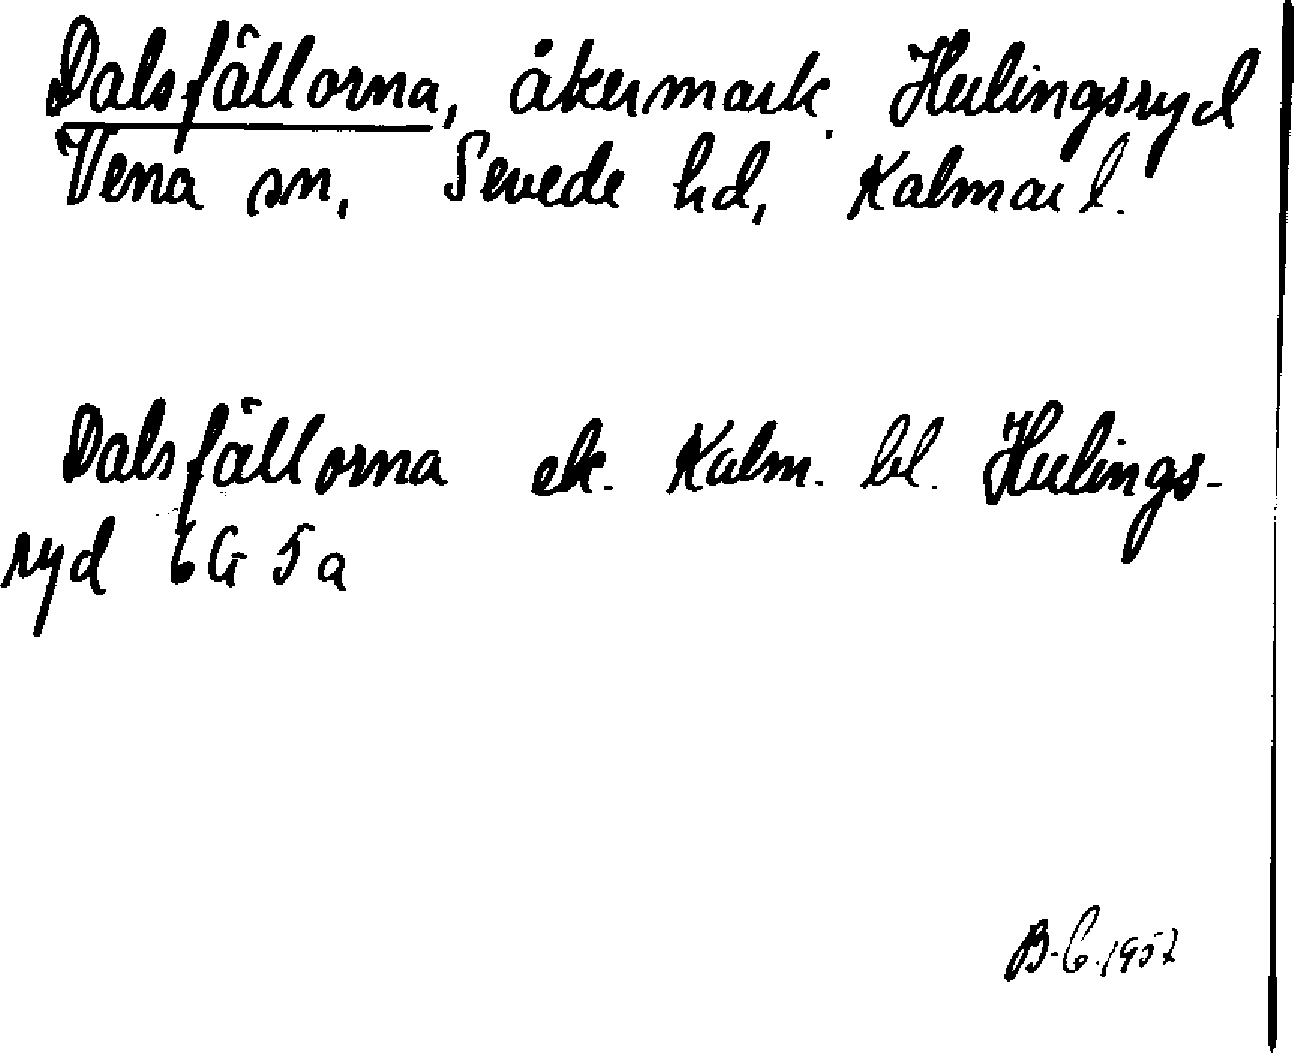 Dalsfällorna, åkermark. Hulingsryd
Vena sn, Sevede hd, Kalmar l.
Dalsfällorna ek. Kalm. bl. Hulings-
ryd 6G 5a
B. C. 1957